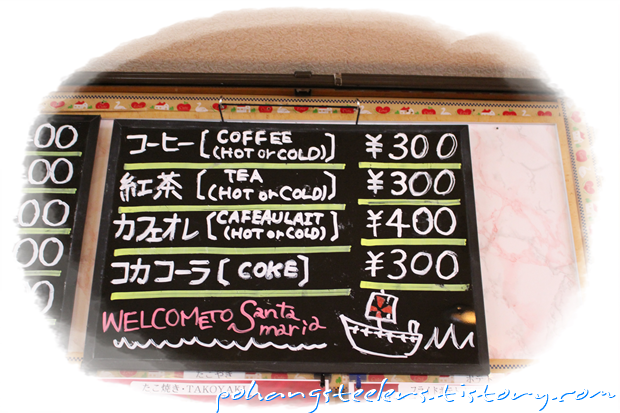 コーヒー[COFFEE (HOT or COLD)] ¥300
紅茶[TEA (HOT or COLD)] ¥300
カフェオレ[CAFEAULAIT (HOT or COLD)] ¥400
コカコーラ[COKE] ¥300
WELCOME TO Santa maria
たこやき
たこ焼き・TAKOYAKI
pohangsteelers.tistory.com